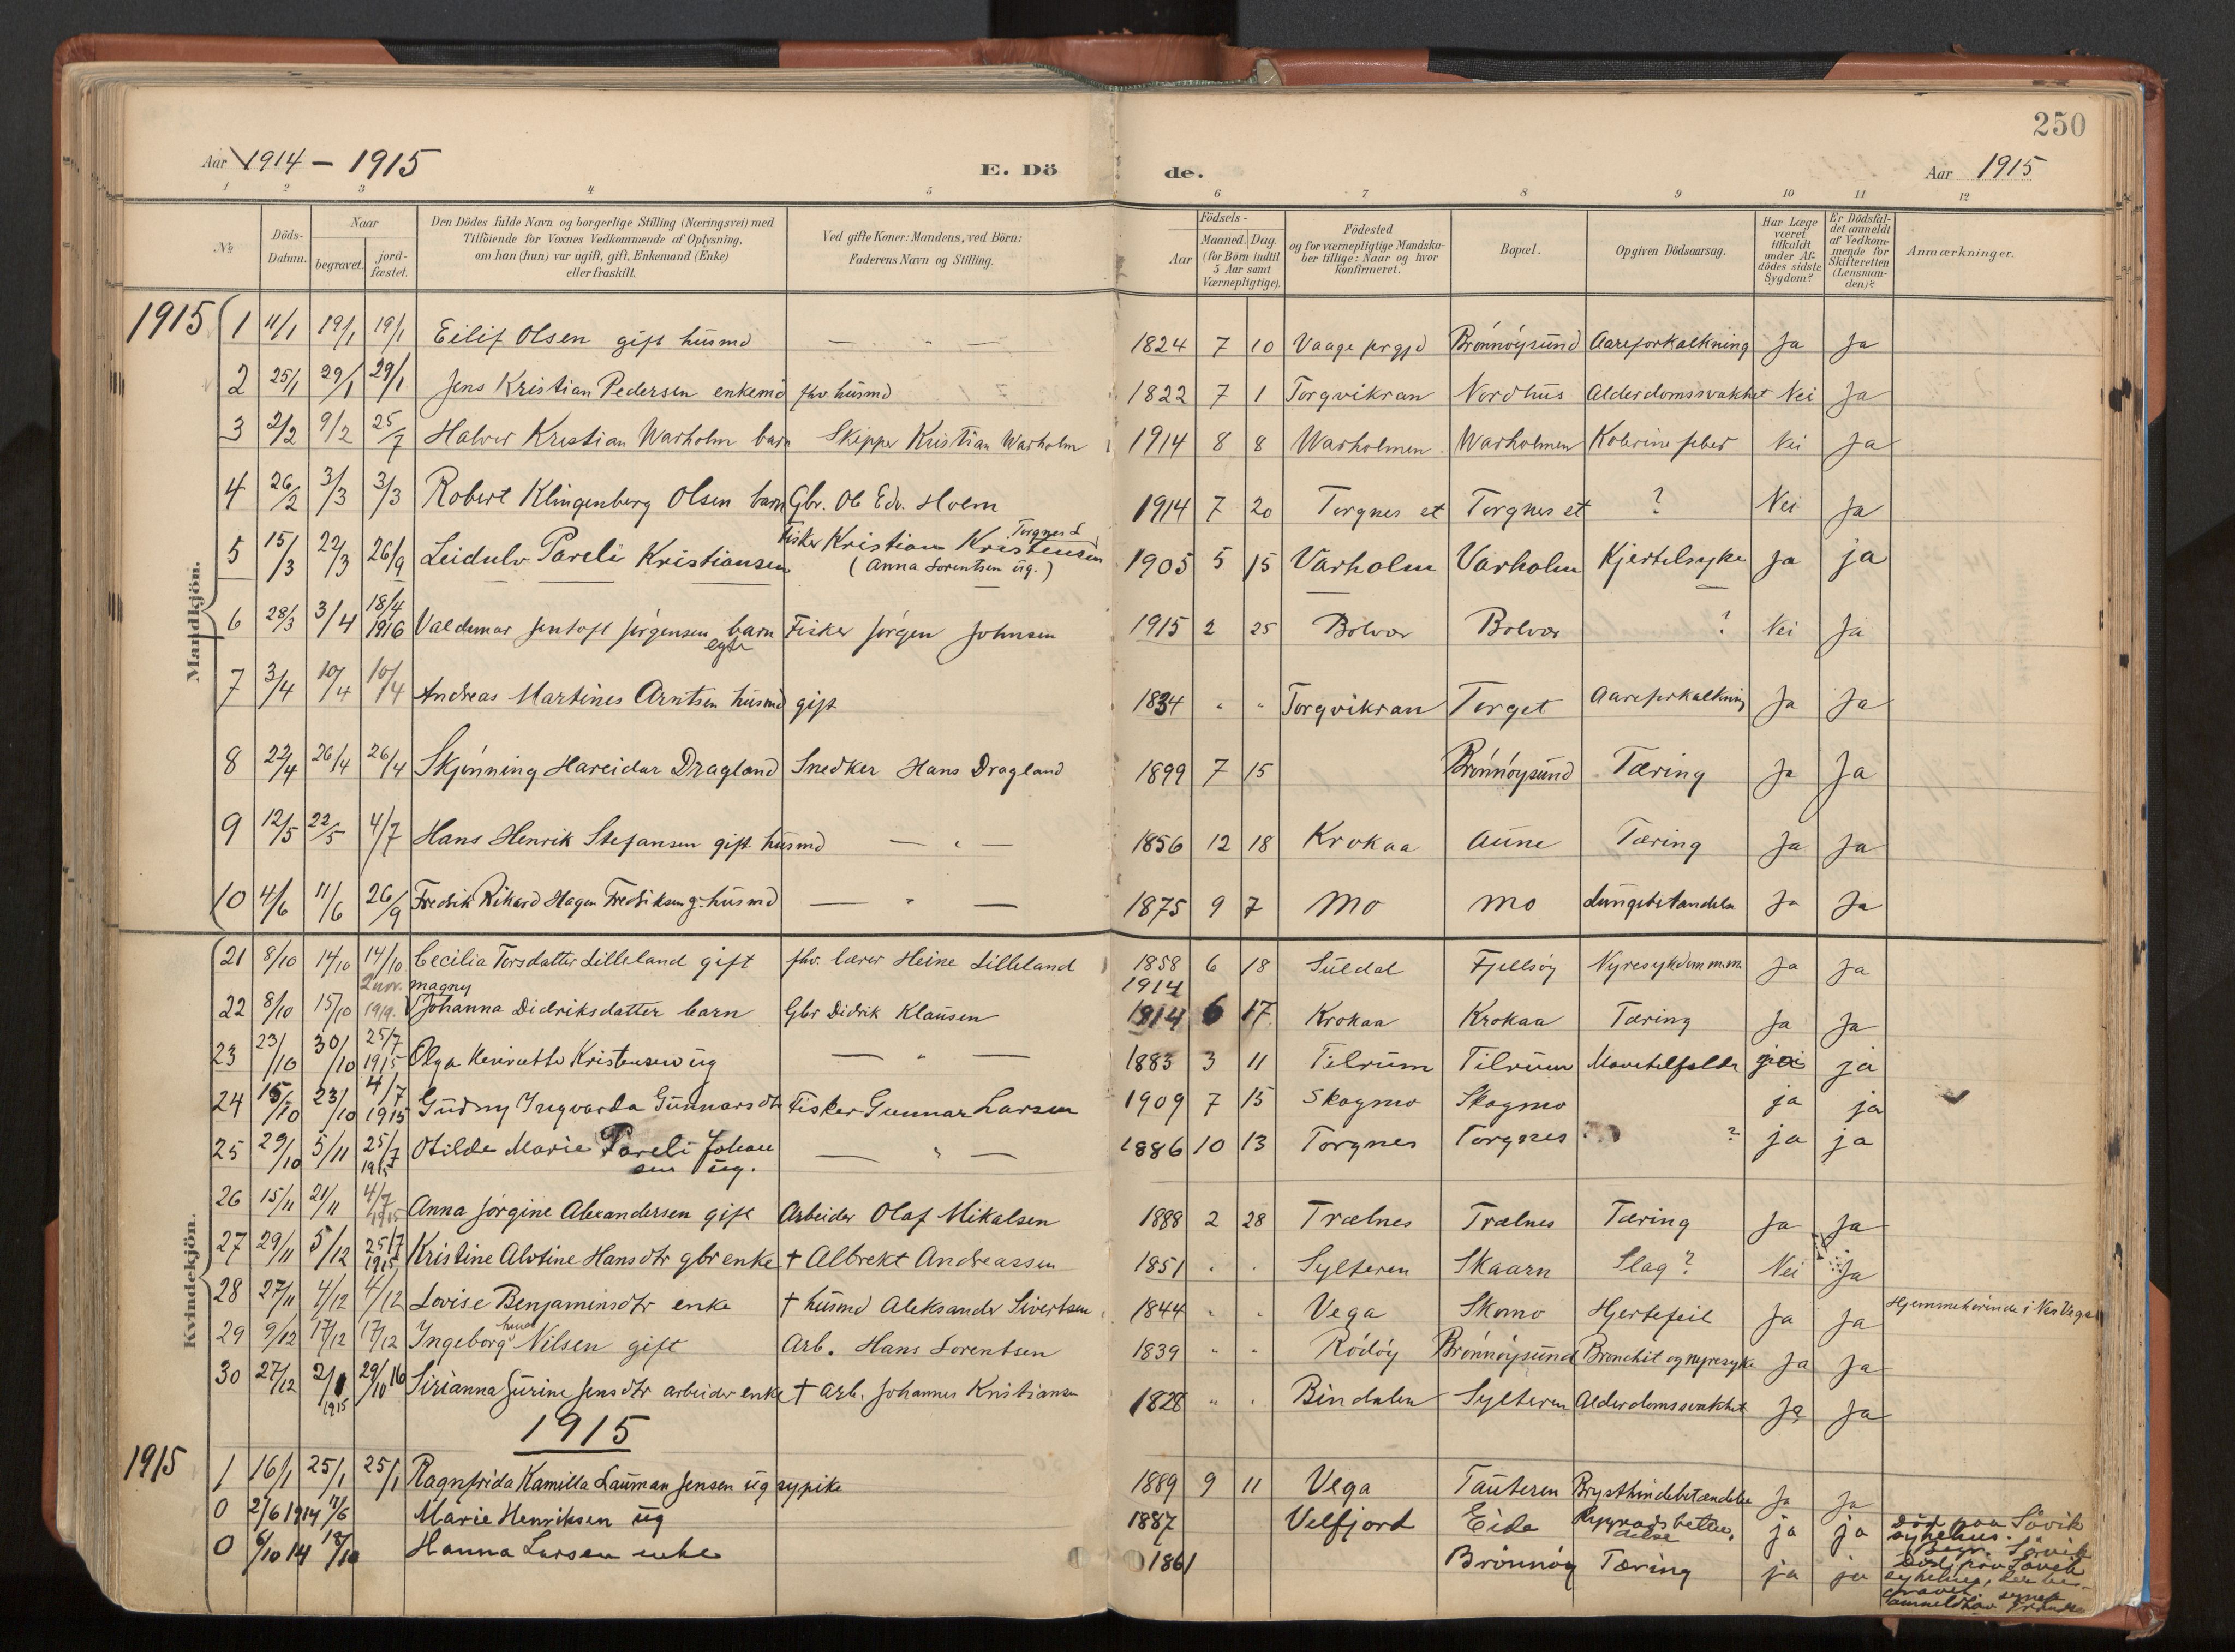 250
Aar 1914 - 1915 E. Dö de. Aar 1915
1 2 3 4 5 6 7 8 9 10 11 12
No Döds-Datum. Naar begravet. jord-fæstet. Den Dödes fulde Navn og borgerlige Stilling (Næringsvei) med Tilföiende for Voxnes Vedkommende af Oplysning, om han (hun) var ugift, gift, Enkemand (Enke) eller fraskilt. Ved gifte Koner: Mandens, ved Börn: Faderens Navn og Stilling. Födsels- Aar Maaned. Dag. (for Börn indtil 5 Aar samt Værnepligtige). Födested og for værnepligtige Mandska-ber tillige: Naar og hvor konfirmeret. Bopæl. Opgiven Dödsaarsag. Har Læge været tilkaldt under Af-dödes sidste Sygdom? Er Dödsfal-det anmeldt af Vedkom-mende for Skifteretten (Lensman-den)? Anmærkninger.
Mandkjön.
1915 1 11/1 19/1 19/1 Eilif Olsen gift husmd — " — 1824 7 10 Vaage prgjd Brönnöysund Aareforkalkning Ja Ja
2 25/1 29/1 29/1 Jens Kristian Pedersen enkemd fhv husmd 1822 7 1 Torgvikran Nordhus Alderdomssvakhet Nei Ja
3 2/2 9/2 25/7 Halvor Kristian Warholm barn Skipper Kristian Warholm 1914 8 8 Warholmen Warholmen Kolerine feber Nei Ja
4 26/2 3/3 3/3 Robert Klingenberg Olsen barn Gbr. Ole Edv. Holm Torgnes 1914 7 20 Torgneset Torgneset ? Nei Ja
5 15/3 22/3 26/9 Leidulv Pareli Kristiansen Fisker Kristian Kristensen (Anna Lorentsen ug.) 1905 5 15 Varholm Varholm Kjertelsyke Ja ja
6 28/3 3/4 18/4 1916 Valdemar Jentoft Jörgensen barn egte Fisker Jörgen Johnsen 1915 2 25 Bolvær Bolvær ? Nei Ja
7 3/4 10/4 10/4 Andreas Martines Arntsen husmd gift 1834 " " Torgvikran Torget Aareforkalkning Ja Ja
8 22/4 26/4 26/4 Skjönning Hareidar Dragland Snedker Hans Dragland 1899 7 15 Brönnöysund Tæring Ja Ja
9 12/5 22/5 4/7 Hans Henrik Stefansen gift husmd — " — 1856 12 18 Krokaa Aune Tæring Ja Ja
10 4/6 11/6 26/9 Fredrik Rikard Hagen Fredriksen g. husmd — " — 1875 9 7 Mo Mo Lungebetændelse Ja Ja
Kvindekjön.
21 8/10 14/10 14/10 Cecilia Torsdatter Lilleland gift fhv. lærer Heine Lilleland 1858 6 18 Suldal Fjellsöy Nyresykdom m.m. Ja Ja
22 8/10 15/10 2 nov. 1919. Magny Johanna Didriksdatter barn Gbr Didrik Klausen 1914 1914 6 17 Krokaa Krokaa Tæring Ja Ja
23 23/10 30/10 25/7 1915 Olga Kristensen ug — " — 1883 3 11 Tilrum Tilrum ja ja
24 15/10 23/10 4/7 1915 Gudny Ingvarda Gunnarsdtr Fisker Gunnar Larsen 1909 7 15 Skogmo Skogmo ja ja
25 29/10 5/11 25/7 1915 Otilde Marie Pareli Johansen ug. — " — 1886 10 13 Torgnes Torgnes ? ja ja
26 15/11 21/11 4/7 1915 Anna Jörgine Alexandersen gift Arbeider Olaf Mikalsen 1888 2 28 Trælnes Trælnes Tæring Ja Ja
27 29/11 5/12 25/7 1915 Kristine Alotine Hansdtr gbr enke † Albrekt Andreassen 1851 " " Sylteren Skaarn Slag? Nei Ja
28 27/11 4/12 4/12 Lovise Benjaminsdtr enke † husmd Aleksander Sivertsen 1844 " " Vega Skomo Hjertefeil Ja Ja Hjemmehörende i Nes Vega
29 9/12 17/12 17/12 Ingeborg Nilsen gift Arb. Hans Lorentsen 1839 " " Rödöy Brönnöysund Bronchit og nyresyke Ja Ja
30 27/12 2/1 1915 29/10 16 Sirianna Surine Jensdtr arbeider enke † arb. Johannes Kristiansen 1828 " " Bindalen Sylteren Alderdomssvakhet Ja Ja
1915
1915 1 16/1 25/1 25/1 Ragnfrida Kamilla Lauman Jensen ug sypike 1889 9 11 Vega Tauteren Brysthindebetændelse Ja Ja
0 2/6 1914 11/6 Marie Henriksen ug 1887 Velfjord Eide ja ja Död paa Sövik sykehus. Begr. Sövik
0 6/10 14 18/10 Hanna Larsen enke 1861 Brönnöy Tæring ja ja Död paa Sövik sykehus,